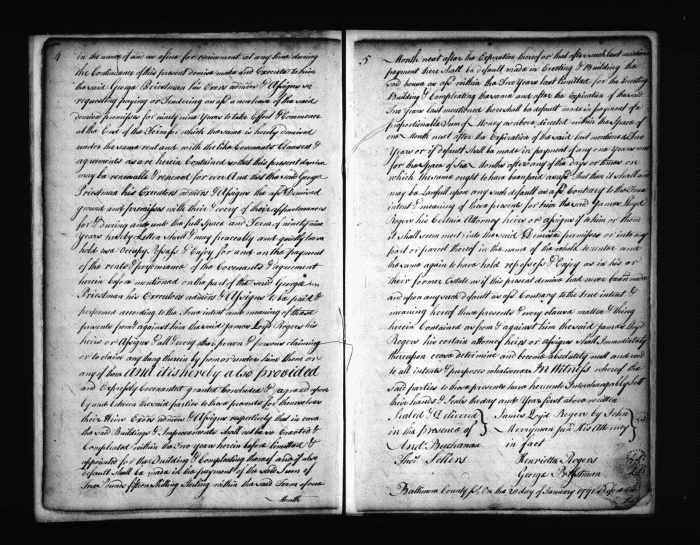 4
in the name of and as afine for enrewment at any time during
the Continuance of this present demise make and Execute to him
the said George Priestman his Exors admors & Assigns so
requesting paying or Tendering as afd a new lease of the said
demised premisses for ninety nine Years to take Effect & Commence
at the End of the Term for which the same is hereby demised
under the same rent and with the like Covenants Clauses &
agreements as are herein Contained so that this present demise
may be renewable & renewed for ever And that the said George
Priestman his Executors admors & Assigns the afd Demised
ground and premisses with their & every of their appurtenances
for & during and unto the full Space and Term of ninety nine
Years hereby Letten Shall & may peaceably and quietly have
hold use Occupy Possess & Enjoy for and on the payment
of the rents & performance of the Covenants & agreement
herein before mentioned on the part of the said George
Priestman his Executors admors & Assigns to be paid &
performed according to the True intent and meaning of these
presents from & against him the said James Loyd Rogers his
heirs or Assigns & all & every other person & persons claiming
or to claim any thing therein by from or under him them or
any of them And it is hereby also provided
and Expressly Covenanted granted Concluded & agreed upon
by and between the said parties to these presents for themselves
their Heirs Exors admors & Assigns respectively that in case
the said Buildings & Improvements Shall not be so Erected &
Compleated within the Two years herein before limitted &
appointed for the Building & Compleating thereof and if also
default Shall be made in the payment of the said Sum of
Two Pounds fifteen Shilling Sterling within the said Term of one
Month
5
Month next after the Expiration thereof or that after such last mentioned
payment there Shall be default made in Erecting & Building the
said house as afd within the Two Years last limitted for the Erecting
Building & Compleating the same and after the Expiration of the said
Two Years last mentioned there shall be default made in payment of a
proportionable Sum of Money as above directed within the Space of
one Month next after the Expiration of the said last mentioned Two
Years or if default Shall be made in payment of any one Years rent
for the Space of Six Months after any of the days or times on
which the same ought to have been paid as afd That then it shall and
may be Lawfull upon any such default as afd Contrary to the True
intent & meaning of these presents for him the said James Lloyd
Rogers his Certain Attorney heirs or assigns to him or them
it shall seem meet into the said Demised premisses or into any
part or parcel thereof in the name of the whole to enter and
the same again to have hold repossess & Enjoy as in his or
their former Estate as if this present demise had never been made
and upon any such default as afd Contrary to the true intent &
meaning hereof these presents & every clause matter & thing
herein Contained as from & against him the said James Lloyd
Rogers his certain attorney heirs or assigns Shall Immediately
thereupon cease determine and become absolutely null and void
to all intents & purposes whatsoever In Witness whereof the
said parties to these presents have hereunto Interchangeably set
their hands & Seals the day and Year first above written
Sealed & Delivered
in the presence of
Andw Buchanan
Thos Sellers
James Loyd Rogers by John
Merryman junr His Attorney
in fact
Henrietta Rogers
George Priestman
Baltimore County Ss. On the 20 day of January 1791 Before